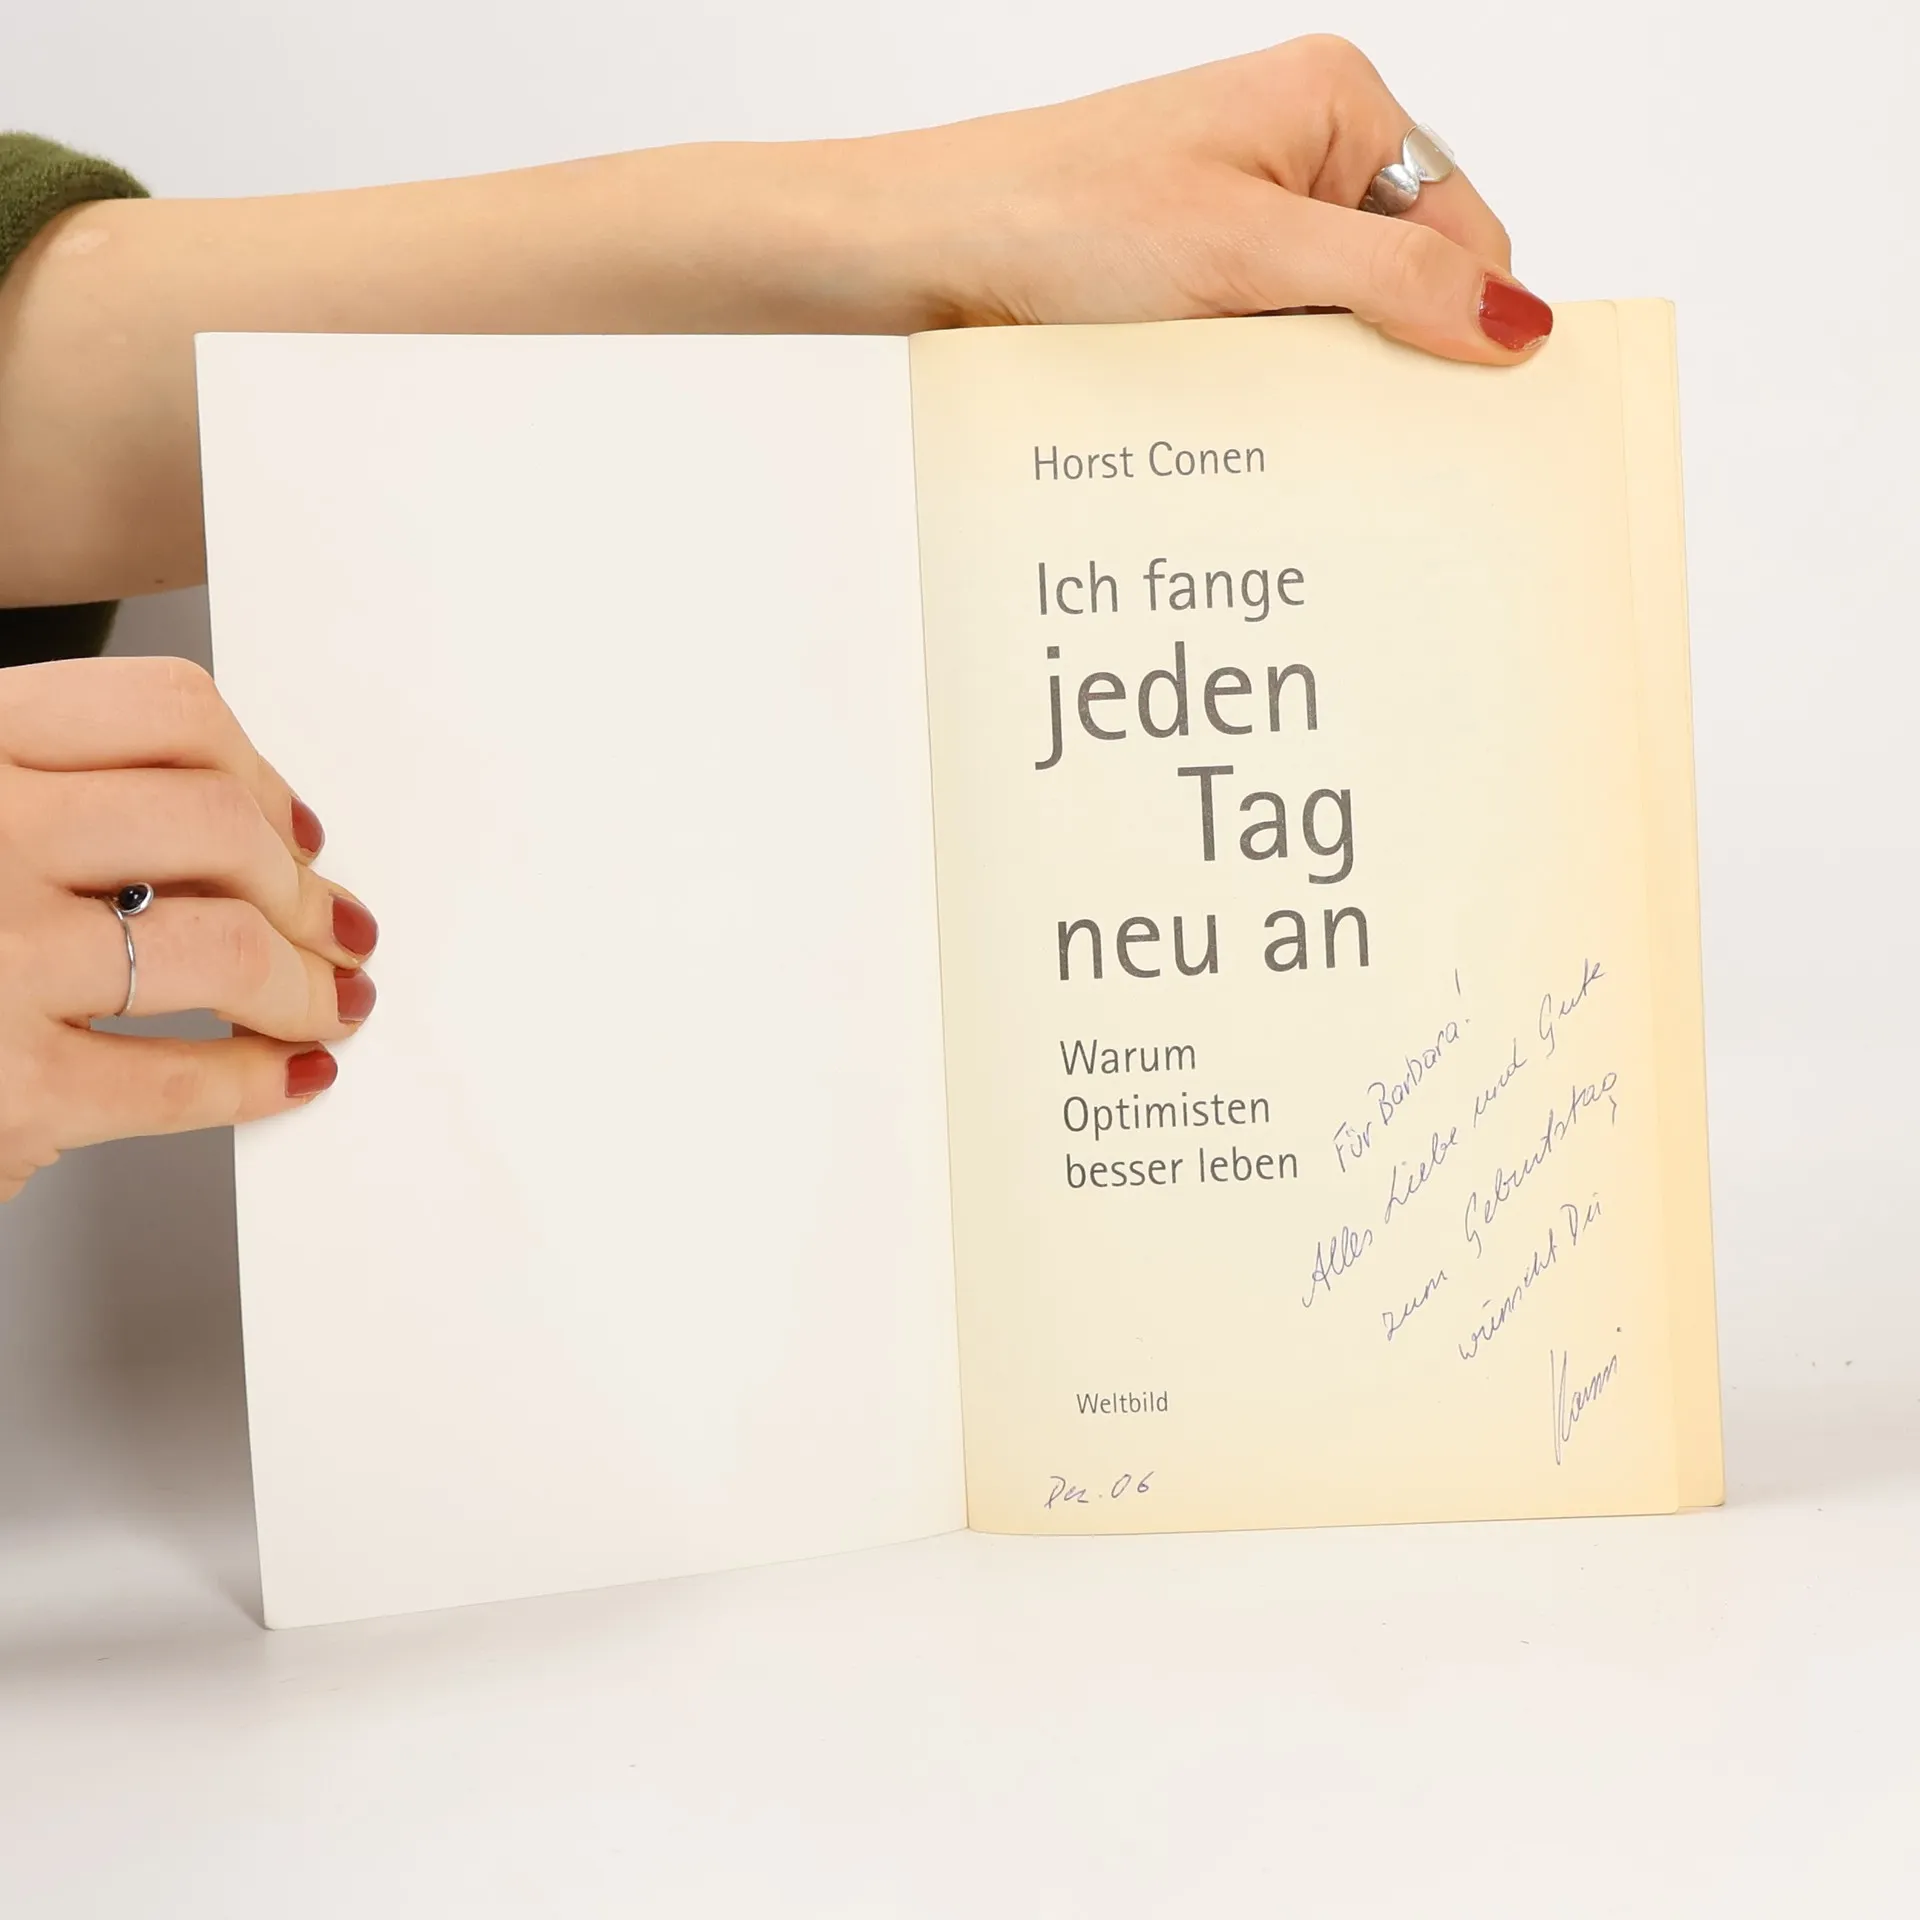 Horst Conen
Ich fange
jeden
Tag
neu an
Warum
Optimisten
besser leben
Für Barbara!
Alles Liebe und Gute
zum Geburtstag
wünscht Dir
Weltbild
Dez. 06